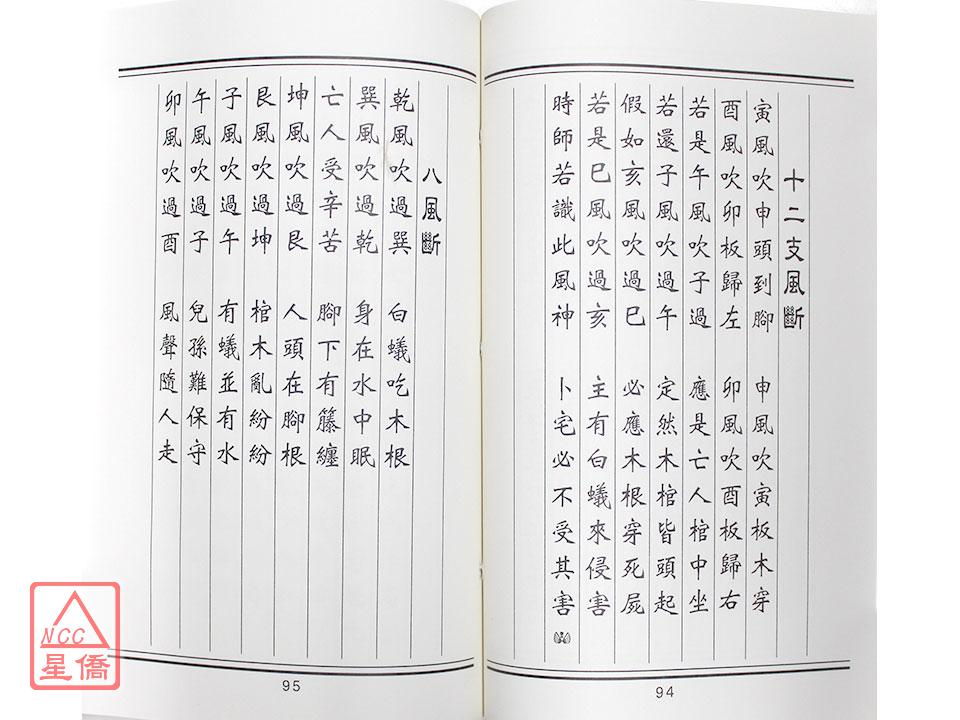 十二支風斷
寅風吹申頭到腳　申風吹寅板木穿
酉風吹卯板歸左　卯風吹酉板歸右
若是午風吹子過　應是亡人棺中坐
若還子風吹過午　定然木棺皆頭起
假如亥風吹過巳　必應木根穿死屍
若是巳風吹過亥　主有白蟻來侵害
時師若識此風神　卜宅必不受其害
94
八風斷
乾風吹過巽　白蟻吃木根
巽風吹過乾　身在水中眠
亡人受辛苦　腳下有籐纏
坤風吹過艮　人頭在腳根
艮風吹過坤　棺木亂紛紛
子風吹過午　有蟻並有水
午風吹過子　兒孫難保守
卯風吹過酉　風聲隨人走
95
NCC
星僑